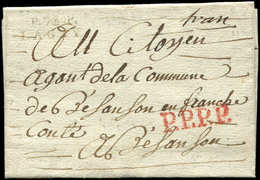 fran
Au Citoyen
agant de la Commune
de Besanson en franche
Conté
P.P.P.P.
A Besanson